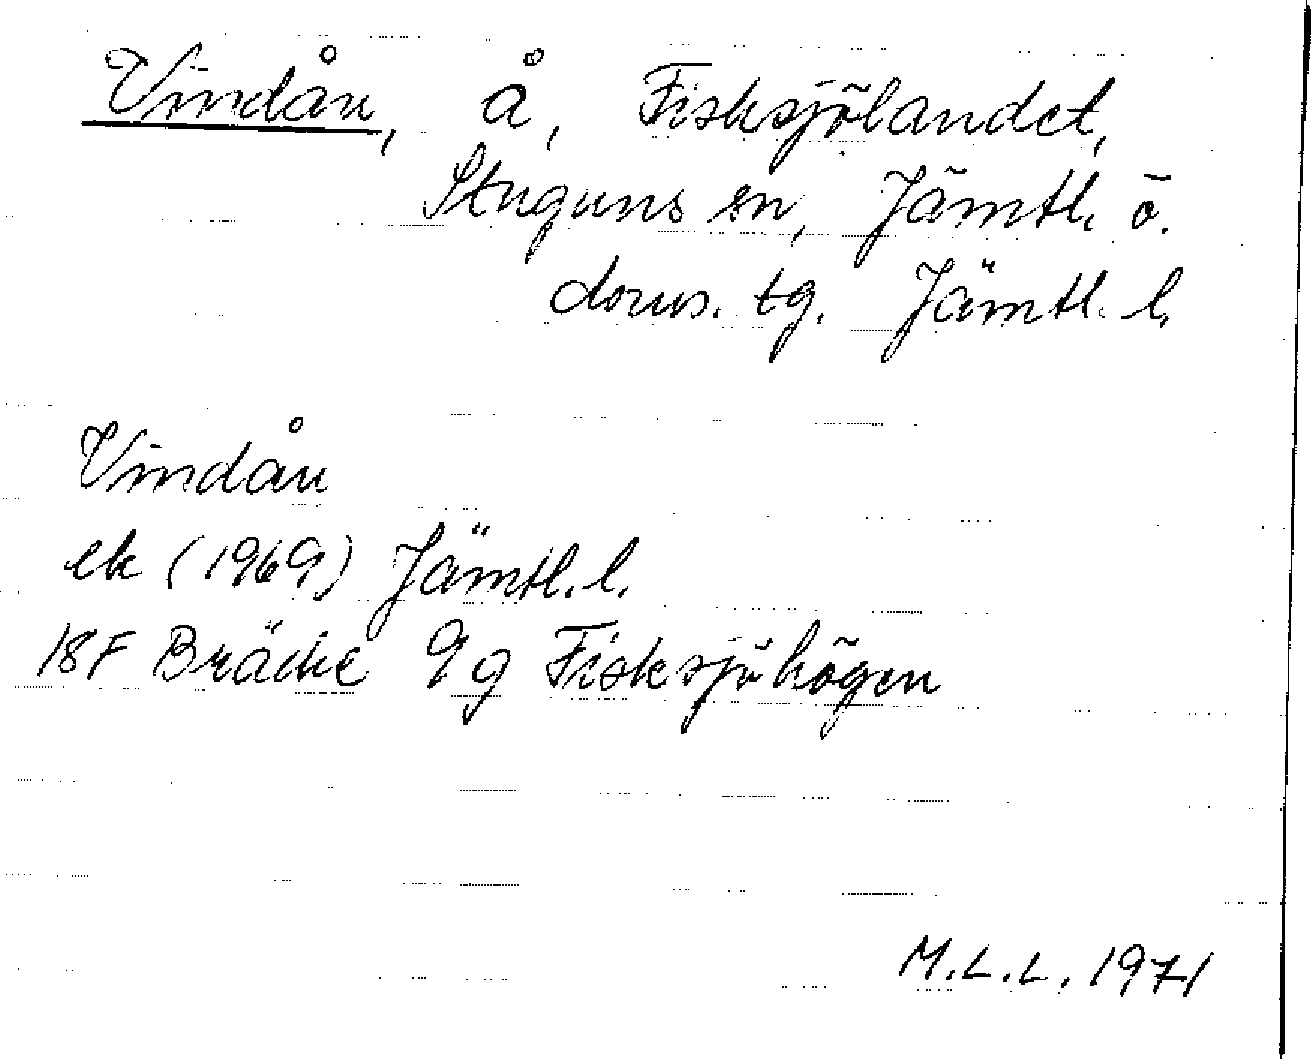 Vindån, å, Fisksjölandet,
Stuguns sn, Jämtl. ö.
doms. tg. Jämtl. l.
Vindån
ek (1969) Jämtl. l.
18F Bräcke 9g Fisksjöhögen
M.L.L. 1971